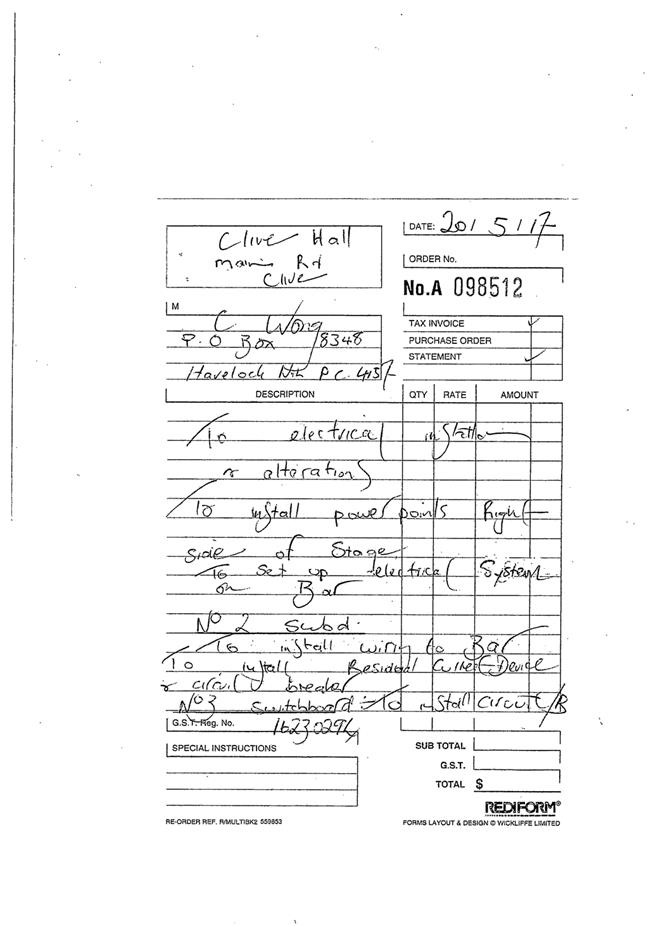 DATE: 20/5/17
Clive Hall
Main Rd
Clive
ORDER No.
No.A 098512
M
C Wong
P.O Box 8348
Havelock Nth P.C. 4157
TAX INVOICE ✓
PURCHASE ORDER
STATEMENT ✓
DESCRIPTION QTY RATE AMOUNT
To electrical
& alterations
To install power points Right
side of Stage
To set up electrical System
on Bar
No 2 Subd.
To install wiring to Bar
To install Residual Device
& circuit breaker
No 3 Switchboard To install Circuit/B
G.S.T. Reg. No.
SPECIAL INSTRUCTIONS
SUB TOTAL
G.S.T.
TOTAL $
REDIFORM®
RE-ORDER REF. R/MULTIBK2 559853
FORMS LAYOUT & DESIGN © WICKLIFFE LIMITED